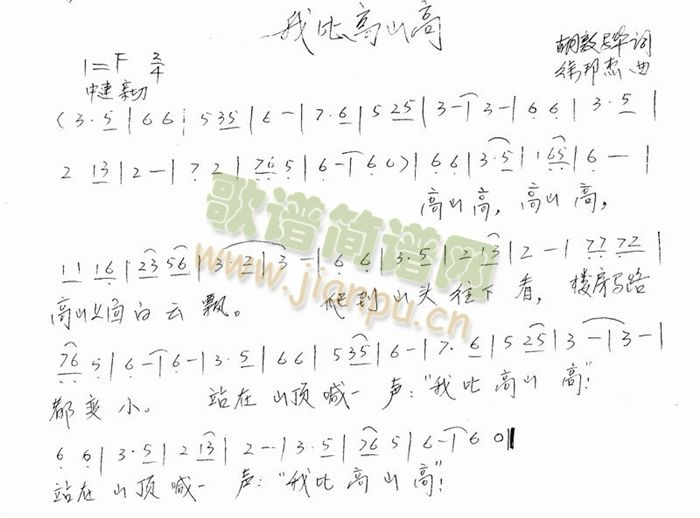 我比高山高
1=F 2/4
胡敦骅词
徐邦杰 曲
中速 亲切
(3·5|66|535|6-|7·6|525|3-|3-|66|3·5|
2 13|2-|72|765|6-|60)|66|3·5|165|6-|
高山高，高山高，
1116|2356|33|3-|66|3·5|213|2-|7772|
高山上面白云飘。 爬到山头往下看，楼房马路
765|6-|6-|3·5|66|535|6-|7·6|525|3-|3-|
都变小。 站在山顶喊一声：“我比高山高！”
66|3·5|213|2-|3·5|765|6-|60‖
站在山顶喊一声：“我比高山高”！
歌谱简谱网
www.jianpu.cn